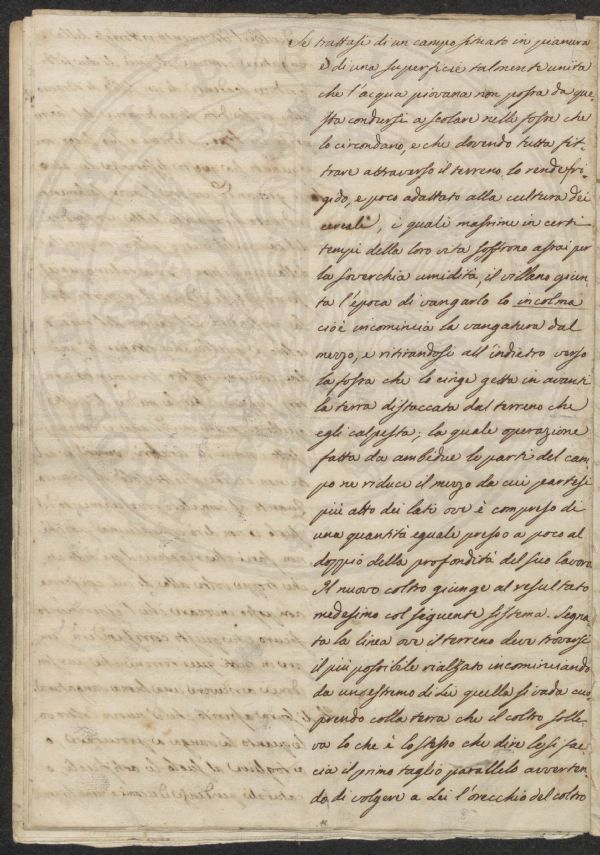 Se trattasi di un campo situato in pianura
e di una superficie talmente unita
che l'acqua piovana non possa da que-
sta condursi a scolare nelle fosse che
lo circondano, e che dovendo tutta fil-
trare attraverso il terreno, lo rende fri-
gido, e poco adattato alla cultura dei
cereali, i quali massime in certi
tempi della loro vita soffrono assai per
la soverchia umidità, il villano giun-
ta l'epoca di vangarlo lo incolma
cioè incomincia la vangatura dal
mezzo, e ritirandosi all'indietro verso
la fossa che lo cinge getta in avanti
la terra distaccata dal terreno che
egli calpesta; la quale operazione
fatta da ambedue le parti del cam-
po ne riduce il mezzo da cui partesi
più alto dei lati ove è compreso di
una quantità eguale presso a poco al
doppio della profondità del suo lavoro
Il nuovo coltro giunge al resultato
medesimo col seguente sistema. Segna-
ta la linea ove il terreno deve trovarsi
il più possibile rialzato incominciando
da un estremo di lei quella si vada cuo-
prendo colla terra che il coltro solle-
va lo che è lo stesso che dire le si fac-
cia il primo taglio parallelo avverten-
do di volgere a lei l'orecchio del coltro